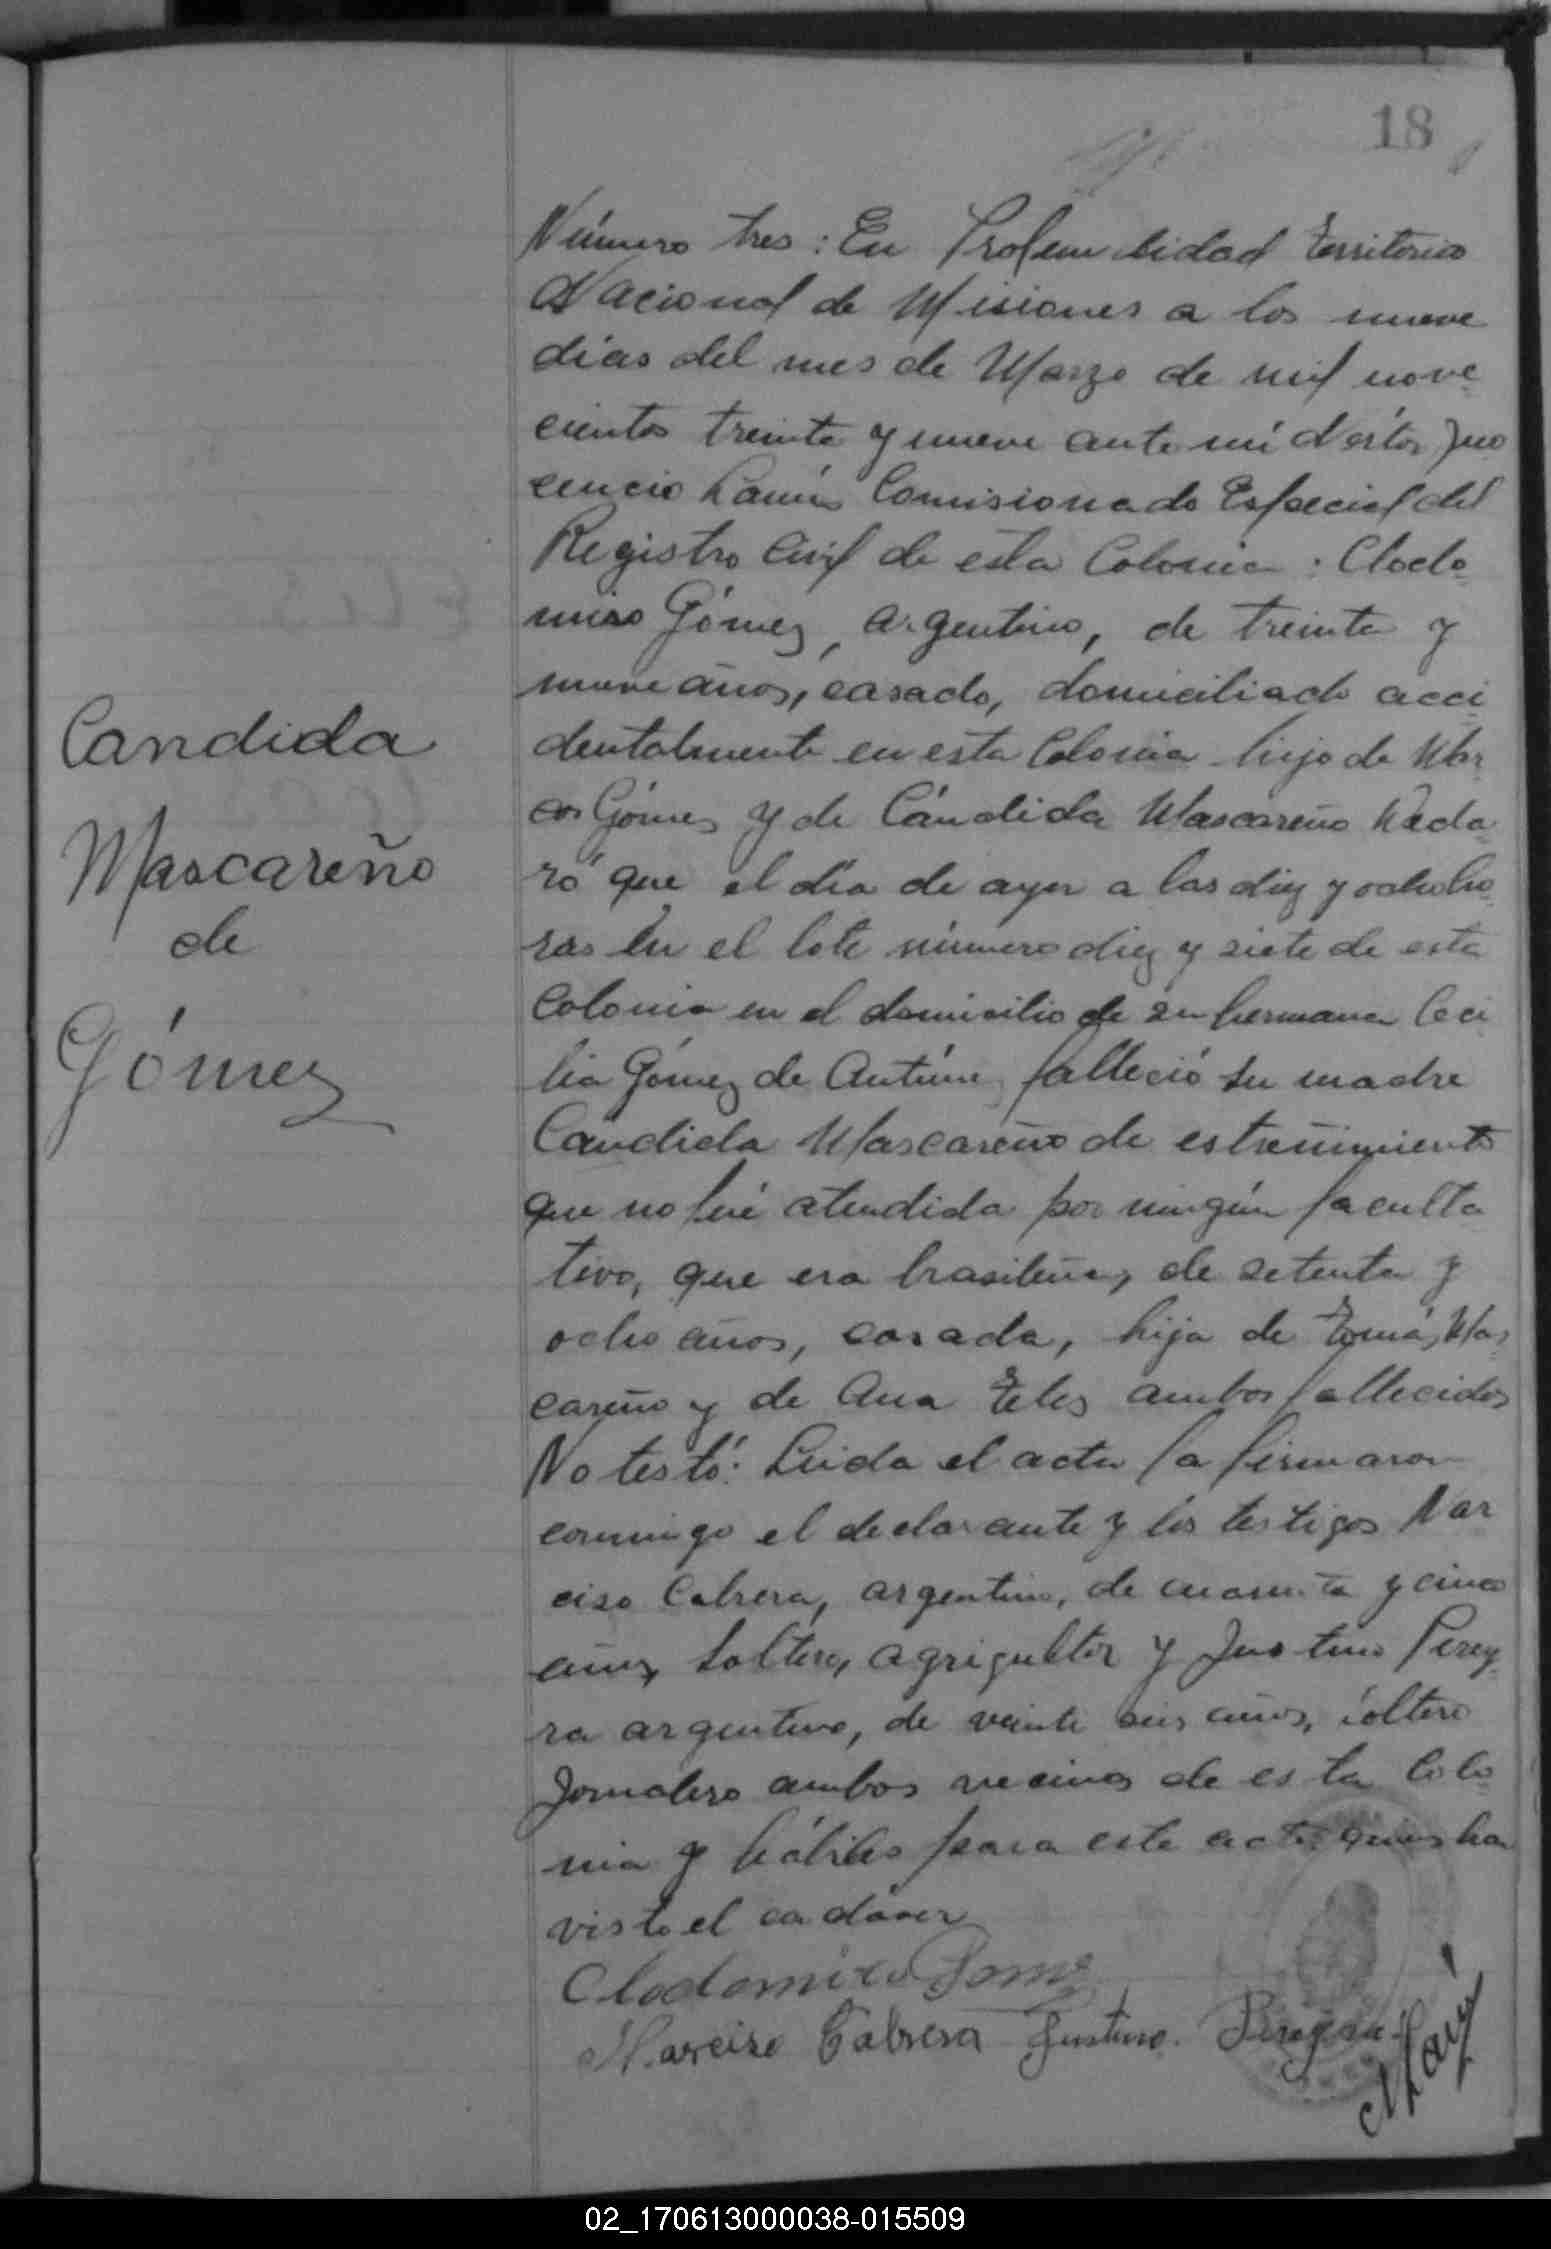 18
Número tres: En Profundidad Territorio
Nacional de Misiones a los nueve
dias del mes de Marzo de mil nove-
cientos treinta y nueve ante mi Néstor Ino
cencio Comisionado Especial del
Registro Civil de esta Colonia: Clodo-
miro Gómez, argentino, de treinta y
nueve años, casado, domiciliado acci-
dentalmente en esta Colonia hijo de Mar-
cos Gómez y de Cándida Mascareño decla-
ró que el día de ayer a las diez y ocho ho-
ras en el lote número diez y siete de esta
Colonia en el domicilio de su hermana Ceci
lia Gómez de falleció su madre
Candida Mascareño de estreñimiento
que no fué atendida por ningún faculta
tivo, que era brasileña, de setenta y
ocho años, casada, hija de Tomás Mas-
careño y de Ana Teles ambos fallecidos
No testó: Leida el acta la firmaron
conmigo el declarante y los testigos Nar
ciso Cabrera, argentino, de cuarenta y cinco
años, soltero, agricultor y Justino Perey-
ra argentino, de veinte seis años, soltero
Jornalero ambos vecinos de esta Colo-
nia y hábiles para este acto quienes han
visto el cadáver
Candida
Mascareño
de
Gómez
Clodomiro Gomez
Narciso Cabrera Justino Pereyra
02_170613000038-015509